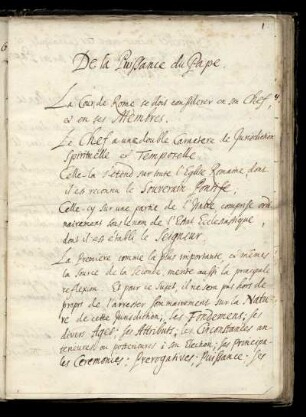 1
De la Puissance du Pape.
La Cour de Rome se doit considerer en son Chef,
& en ses Membres.
Le Chef a une double Carractere de Jurisdiction
Spirituelle & Temporelle.
Celle-la s'etend sur toute l'Eglise Romaine, dont
il est reconnu le Souverain Pontife.
Celle-cy sur une partie de l'Italie comprise ordi-
nairement sous le nom de l'Etat Ecclesiastique,
dont il est établi le Seigneur
La Premiere comme la plus importante & mêmes
la Source de la Seconde, merite aussi la principale
reflexion. Et pour ce Sujet, il ne sera pas hors de
propos de l'arrester sommairement sur la Natu-
re de cette Jurisdiction; Ses Fondemens; Ses
divers Ages; Ses Attributs; les Circonstances an-
terieures ou posterieures à son Election; Ses principa-
les Ceremonies; Prerogatives; Puissance; Ses